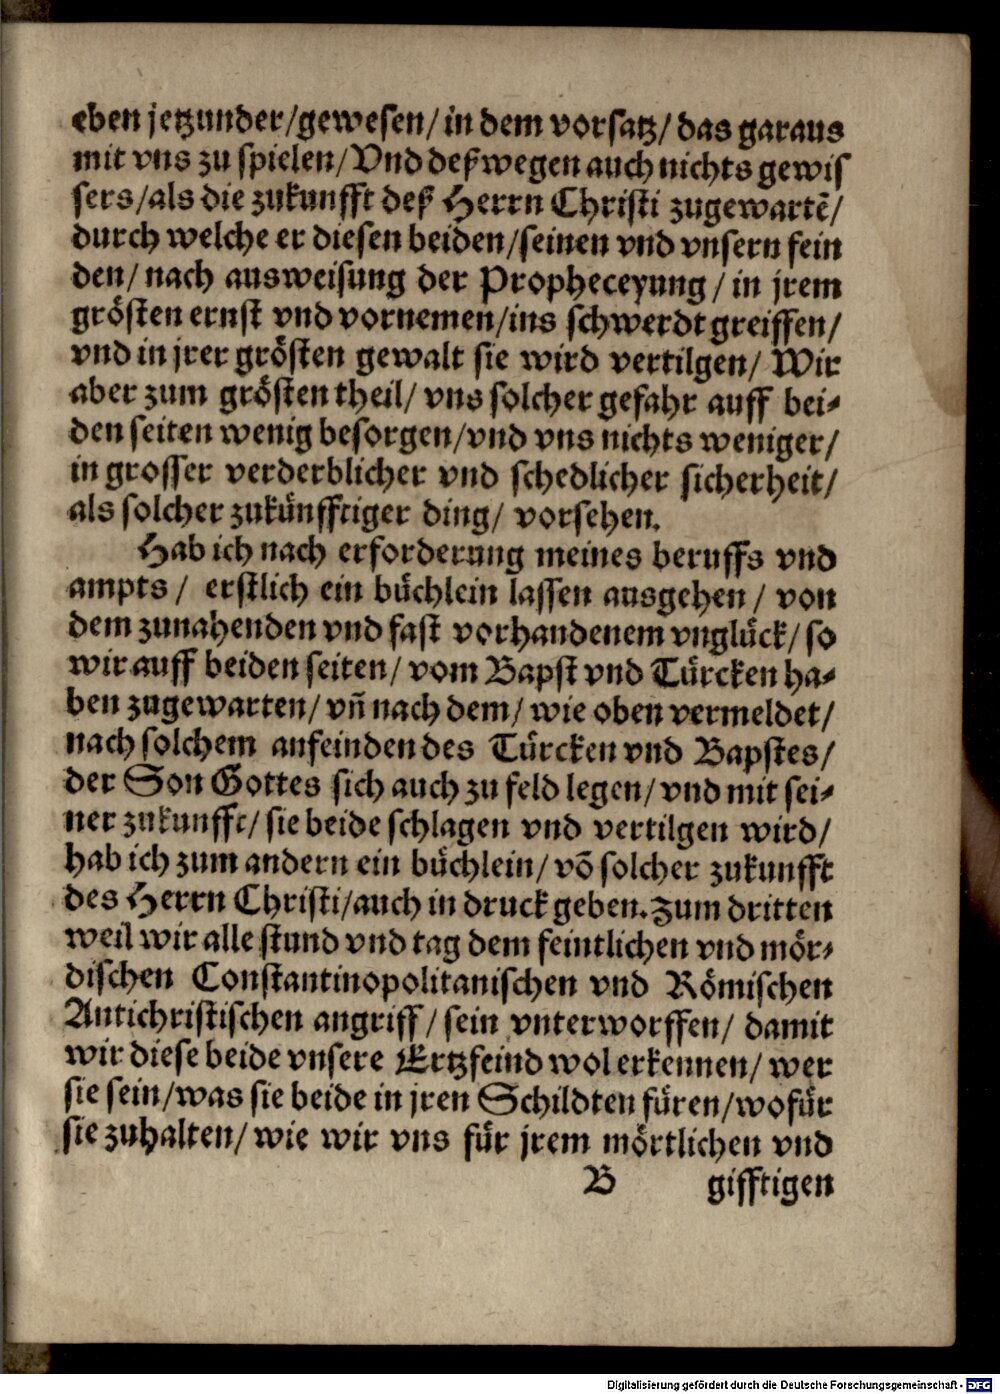 eben jetzunder/gewesen/ in dem vorsatz/ das garaus
mit vns zu spielen/Vnd deßwegen auch nichts gewis
sers/als die zukunfft deß Herrn Christi zugewartē/
durch welche er diesen beiden/seinen vnd vnsern fein
den/ nach ausweisung der Propheceyung / in jrem
grösten ernst vnd vornemen/ins schwerdt greiffen/
vnd in jrer grösten gewalt sie wird vertilgen/ Wir
aber zum grösten theil/ vns solcher gefahr auff bei-
den seiten wenig besorgen/vnd vns nichts weniger/
in grosser verderblicher vnd schedlicher sicherheit/
als solcher zukünfftiger ding/ vorsehen.
Hab ich nach erforderung meines beruffs vnd
ampts / erstlich ein büchlein lassen ausgehen / von
dem zunahenden vnd fast vorhandenem vnglück/ so
wir auff beiden seiten/ vom Bapst vnd Türcken ha-
ben zugewarten/ vn̄ nach dem/ wie oben vermeldet/
nach solchem anfeinden des Türcken vnd Bapstes/
der Son Gottes sich auch zu feld legen/ vnd mit sei-
ner zukunfft/ sie beide schlagen vnd vertilgen wird/
hab ich zum andern ein büchlein/ vō solcher zukunfft
des Herrn Christi/auch in druck geben. Zum dritten
weil wir alle stund vnd tag dem feintlichen vnd mör-
dischen Constantinopolitanischen vnd Römischen
Antichristischen angriff / sein vnterworffen/ damit
wir diese beide vnsere Ertzfeind wol erkennen/ wer
sie sein/was sie beide in jren Schildten füren/wofür
sie zuhalten/ wie wir vns für jrem mörtlichen vnd
B gifftigen
Digitalisierung gefördert durch die Deutsche Forschungsgemeinschaft - DFG